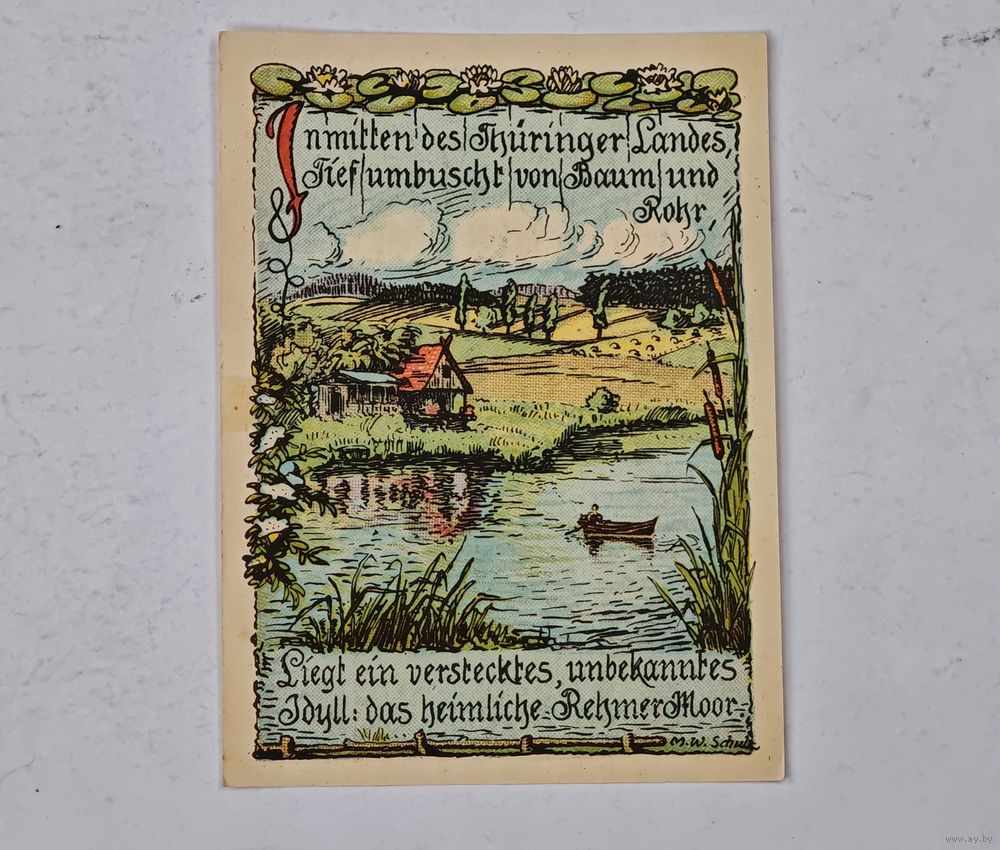 Inmitten des Thüringer Landes,
Tief umbuscht von Baum und
Rohr,
Liegt ein verstecktes, unbekanntes
Idyll: das heimliche-Rehmer Moor-
M.W. Schulz
www.ay.by